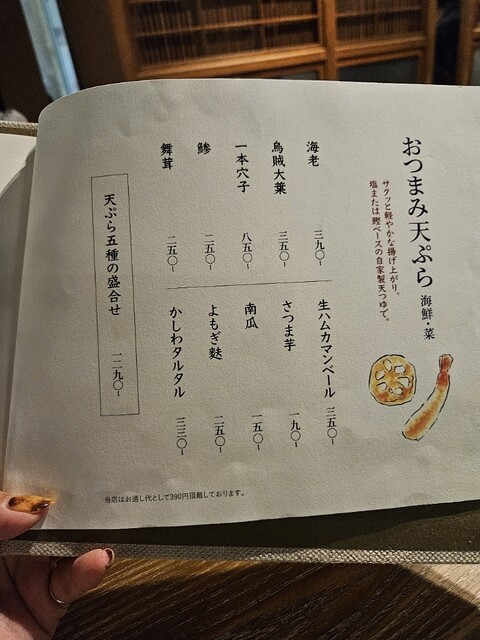 おつまみ天ぷら 海鮮・菜
サクッと軽やかな揚げ上がり。
塩または鰹ベースの自家製天つゆで。
海老 三九〇~
烏賊大葉 三五〇~
一本穴子 八五〇~
鯵 二五〇~
舞茸 二五〇~
生ハムカマンベール 三五〇~
さつま芋 一九〇~
南瓜 一五〇~
よもぎ麩 二五〇~
かしわタルタル 三三〇~
天ぷら五種の盛合せ 一二九〇~
当店はお通し代として390円頂戴しております。